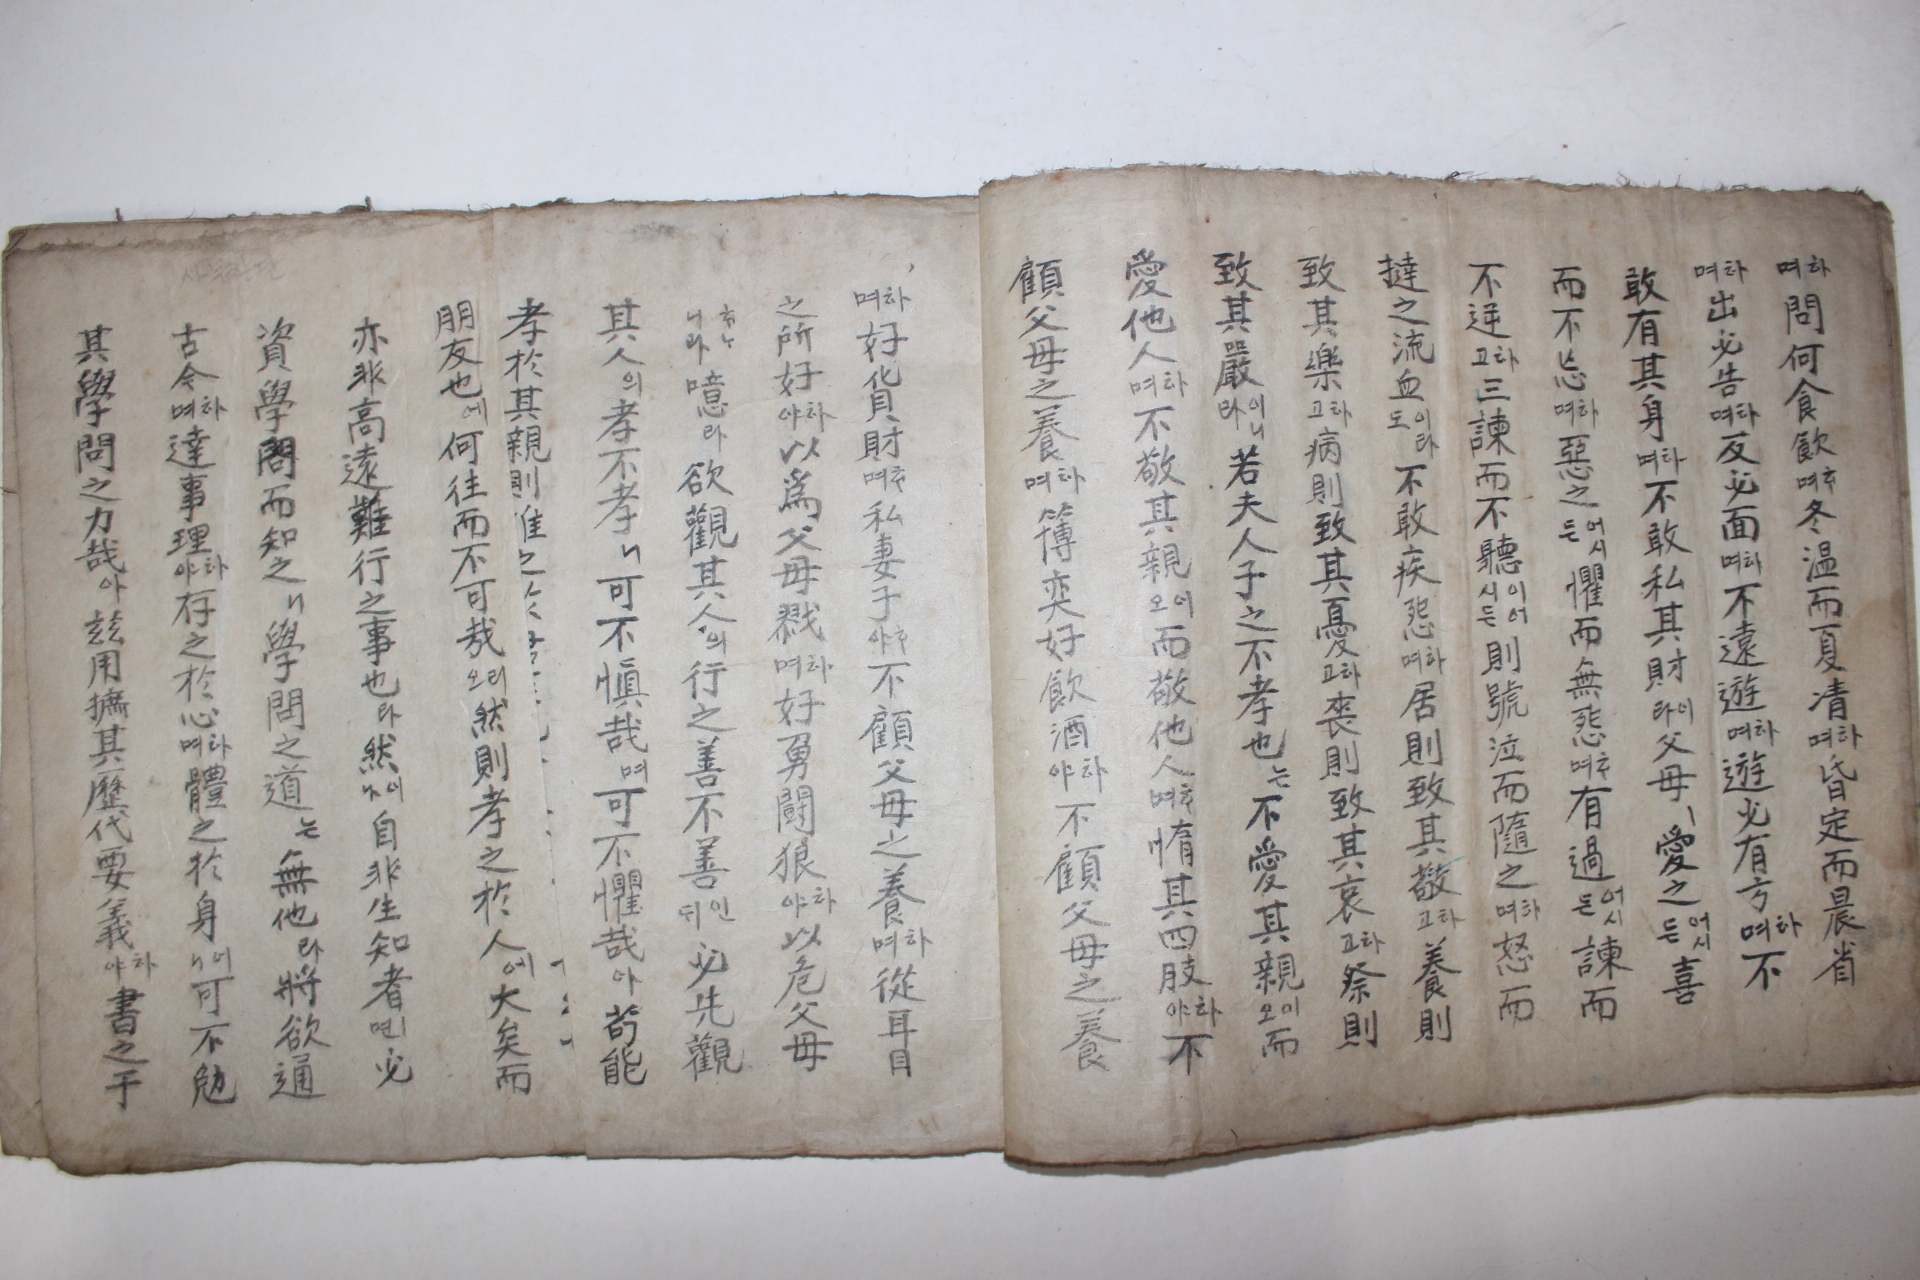 하며問何食飮ᄒᆞ며冬温而夏凊하며昏定而晨省
하며出必告하며反必面하며不遠遊하며遊必有方하며不
敢有其身하며不敢私其財이라父母、愛之어시든喜
而不忘하며惡之어시든懼而無怨ᄒᆞ며有過어시든諫而
不逆하고三諫而不聽이어시든則號泣而隨之하며怒而
撻之流血이라도不敢疾怨하며居則致其敬하고養則
致其樂하고病則致其憂하고喪則致其哀하고祭則
致其嚴이니라若夫人子之不孝也는不愛其親이오而
愛他人하며不敬其親이오而敬他人ᄒᆞ며惰其四肢하야不
顧父母之養하며簿奕好飮酒하야不顧父母之養
하며好貨財ᄒᆞ며私妻子ᄒᆞ야不顧父母之養하며從耳目
之所好하야以爲父母戮하며好勇鬪狼하야以危父母
ᄒᆞᄂ니라噫라欲觀其人의行之善不善인뒤必先觀
其人의孝不孝ㅣ니可不愼哉며可不懼哉아苟能
孝於其親則推之
朋友也에何往而不可哉리오然則孝之於人에大矣而
亦非高遠難行之事也라然이나自非生知者ㅣ면必
資學問而知之니學問之道는無他라將欲通
古今하며達事理하야存之於心하며體之於身이니可不勉
其學問之力哉아玆用摭其歷代要義하야書之于